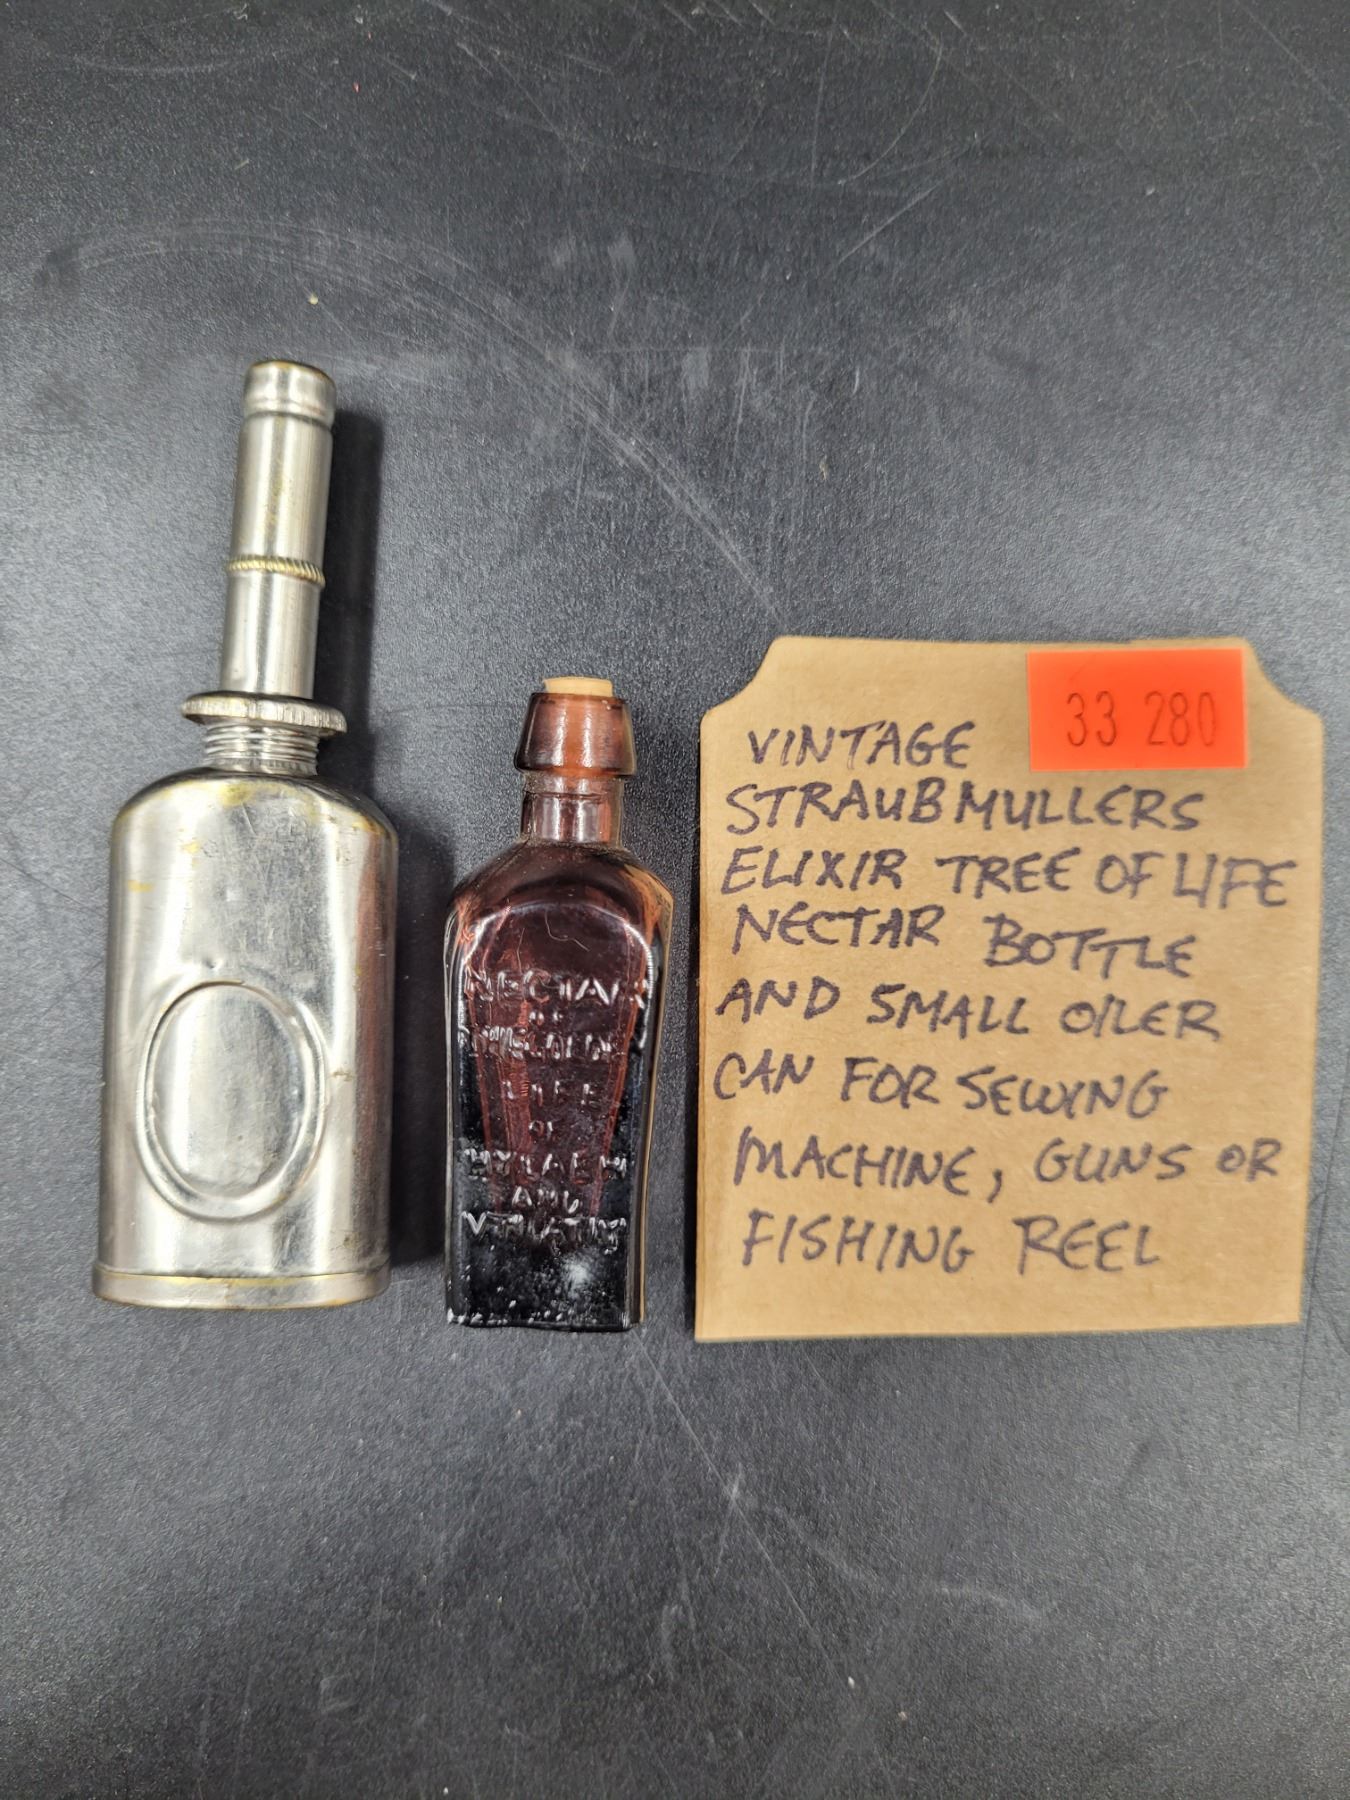 NECTAR
OF
LIFE
OF
AND
33 280
VINTAGE
STRAUBMULLERS
ELIXIR TREE OF LIFE
NECTAR BOTTLE
AND SMALL OILER
CAN FOR SEWING
MACHINE, GUNS OR
FISHING REEL